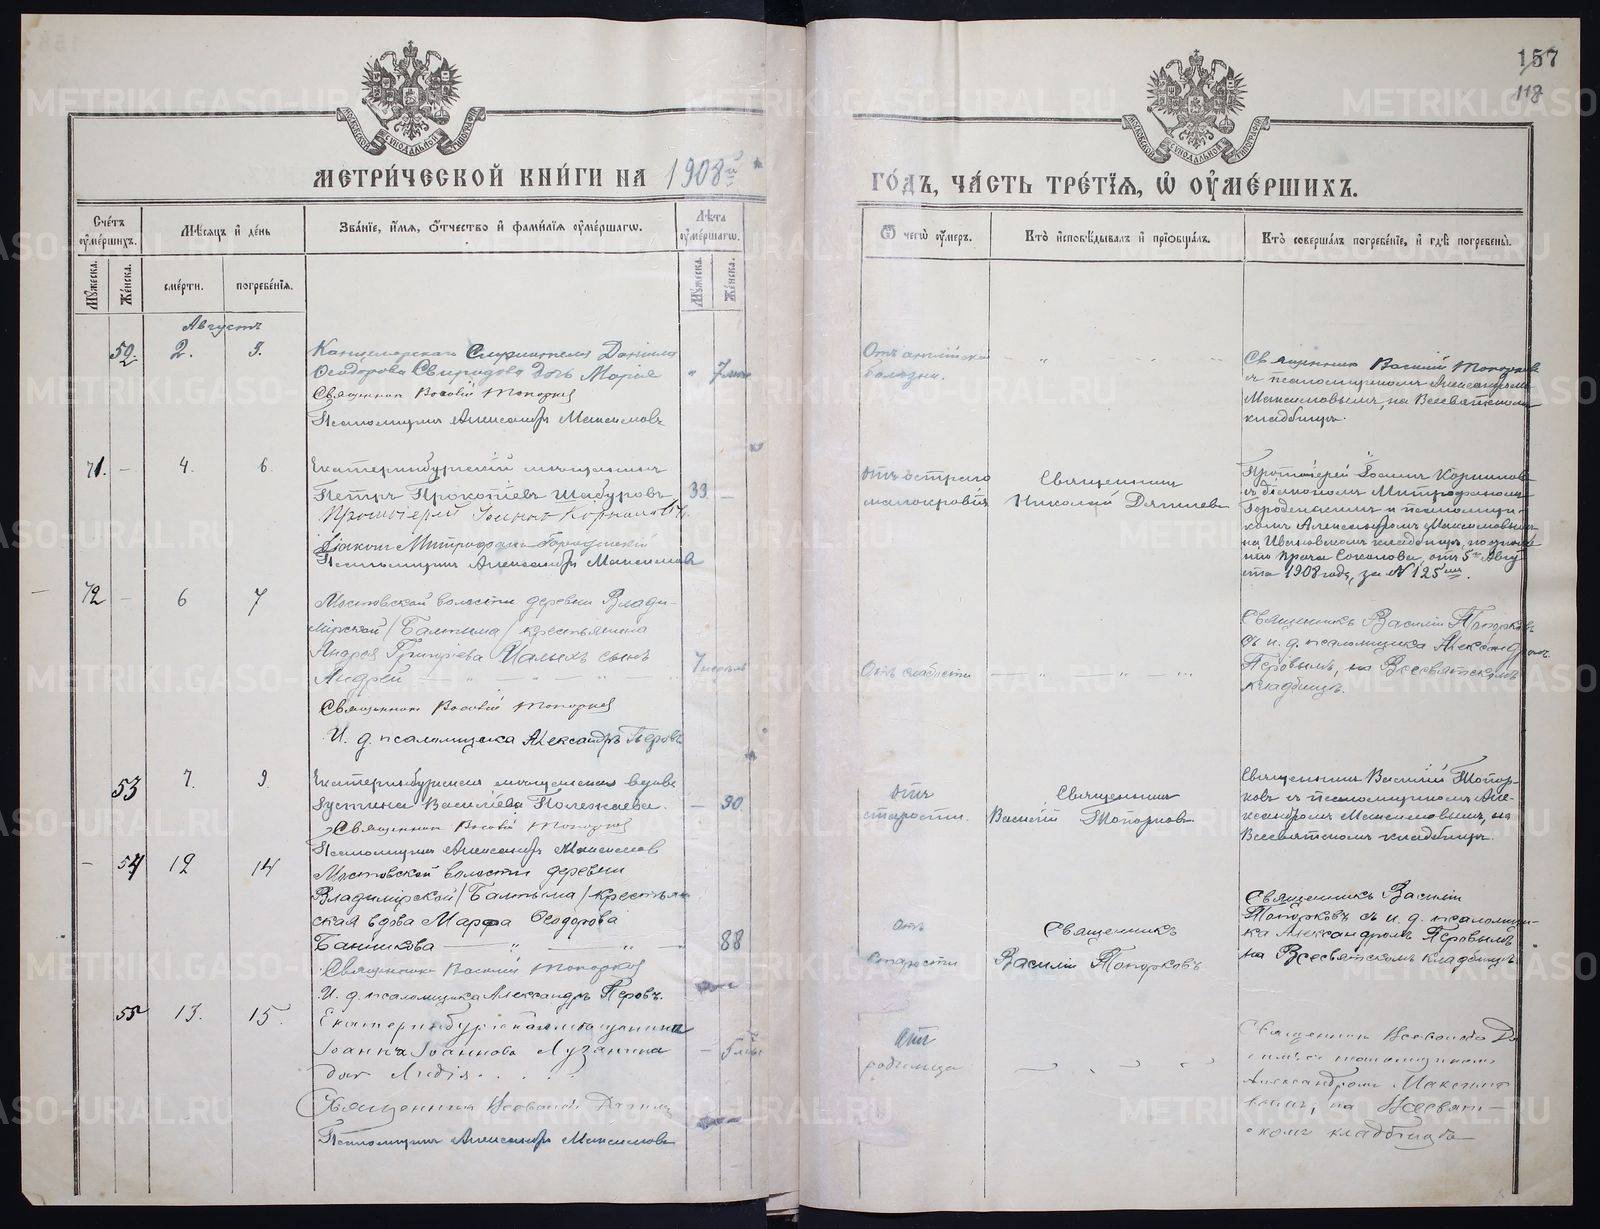 157
118
МОСКОВСКОЙ СѴНОДАЛЬНОЙ ТИПОГРАФІИ
МОСКОВСКОЙ СѴНОДАЛЬНОЙ ТИПОГРАФІИ
МЕТРИ́ЧЕСКОЙ КНИ́ГИ НА 1908й
ГО́ДЪ, ЧА́СТЬ ТРЕ́ТІѦ, Ѡ ОУ҆МЕ́РШИХЪ.
Сче́тъ оу҆ме́ршихъ.
Мѣ́сѧцъ и҆ де́нь
Зва́нїе, и҆́мѧ, ѻ҆́тчество и҆ фами́лїѧ оу҆ме́ршагѡ.
Лѣ́та оу҆ме́ршагѡ.
Ѿ чегѡ̀ оу҆́меръ.
Кто̀ и҆сповѣ́дывалъ и҆ прїѡбща́лъ.
Кто̀ соверша́лъ погребе́нїе, и҆ гдѣ̀ погребены̀.
Мꙋ́жеска.
Же́нска.
сме́рти.
погребе́нїѧ.
Мꙋ́жеска.
Же́нска.
Августъ
52. 2. 3.
Канцелярскаго Служителя Даніила
Ѳеодорова Свиридова дочь Марія
Священникъ Василій Топорковъ
Псаломщикъ Александръ Максимовъ
" 7 мѣс
Отъ англійской
болѣзни.
Священникъ Василій Топорковъ
съ псаломщикомъ Александромъ
Максимовымъ, на Всесвятскомъ
кладбищѣ.
71. – 4. 6.
Екатеринбургскій мѣщанинъ
Петръ Прокопіевъ Шабуровъ
33. –
Протоіерей Іоаннъ Корниловъ
Діаконъ Митрофанъ Городенскій
Псаломщикъ Александръ Максимовъ
отъ остраго
малокровія
Священникъ
Николай Дягилевъ
Протоіерей Іоаннъ Корниловъ
съ діакономъ Митрофаномъ
Городенскимъ и псаломщи-
комъ Александромъ Максимовымъ
на Ивановскомъ кладбищѣ, по запис
кѣ врача Соколова, отъ 5го Авгу
ста 1908 года, за № 125мъ.
72 – 6 7
Мостовской волости деревни Влади-
мірской /Балтыма/ крестьянина
Андрея Григоріева Малыхъ сынъ
Андрей
7 недѣль
Священникъ Василій Топорковъ
И. д. псаломщика Александръ Перовъ
Отъ слабости
Священникъ Василій Топорковъ
съ и. д. псаломщика Александромъ
Перовымъ, на Всесвятскомъ
кладбищѣ.
53 7. 9.
Екатеринбургская мѣщанская вдова
Іустина Василіева Полежаева.
– 90
Священникъ Василій Топорковъ
Псаломщикъ Александръ Максимовъ
отъ
старости.
Священникъ
Василій Топорковъ
Священникъ Василій Топор-
ковъ съ псаломщикомъ Але-
ксандромъ Максимовымъ, на
Всесвятскомъ кладбищѣ.
– 54 12 14
Мостовской волости деревни
Владимірской /Балтыма/ крестьян
ская вдова Марфа Ѳеодорова
Банникова
88
Священникъ Василій Топорковъ
И. д. псаломщика Александръ Перовъ.
отъ
старости
Священникъ
Василій Топорковъ
Священникъ Василій
Топорковъ съ и. д. псаломщи-
ка Александромъ Перовымъ
на Всесвятскомъ кладбищѣ
55 13. 15.
Екатеринбургскаго мѣщанина
Іоанна Іоаннова Лузянина
дочь Лидія
– 5
Священникъ Всеволодъ
Псаломщикъ Александръ Максимовъ
отъ
родимца
Священникъ Всеволодъ
псаломщикомъ
Александромъ Максимо
вымъ, на Всесвят-
скомъ кладбищѣ